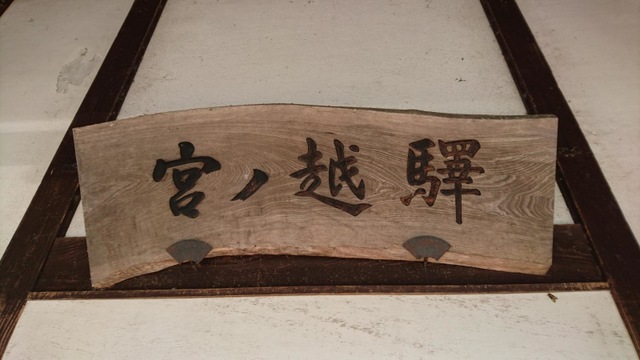 驛越ノ宮